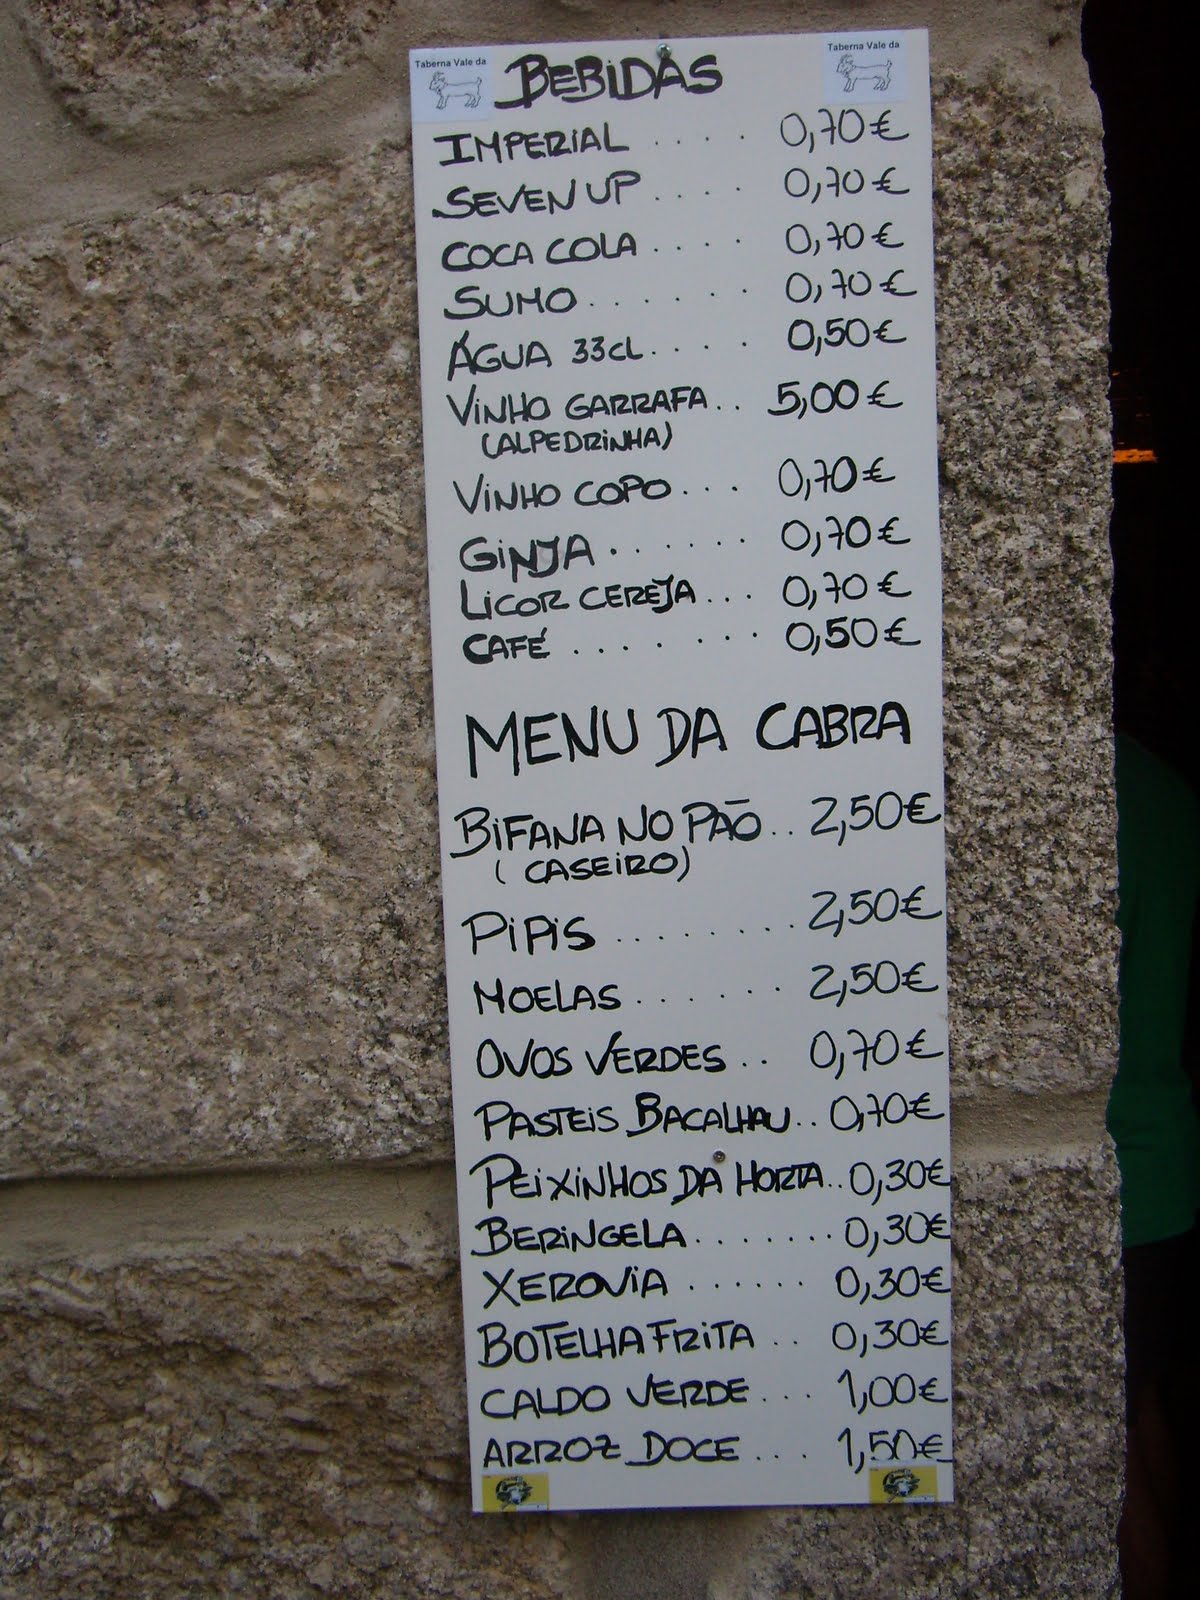 Taberna Vale da
Taberna Vale da
BEBIDAS
IMPERIAL .... 0,70€
SEVEN UP .... 0,70€
COCA COLA .... 0,70€
SUMO ...... 0,70€
ÁGUA 33CL .... 0,50€
VINHO GARRAFA .. 5,00€
(ALPEDRINHA)
VINHO COPO ... 0,70€
GINJA ...... 0,70€
LICOR CEREJA ... 0,70€
CAFÉ ....... 0,50€
MENU DA CABRA
BIFANA NO PÃO .. 2,50€
(CASEIRO)
PIPIS ........ 2,50€
MOELAS ...... 2,50€
OVOS VERDES .. 0,70€
PASTEIS BACALHAU .. 0,70€
PEIXINHOS DA HORTA .. 0,30€
BERINGELA ....... 0,30€
XEROVIA ...... 0,30€
BOTELHA FRITA .. 0,30€
CALDO VERDE ... 1,00€
ARROZ DOCE ... 1,50€